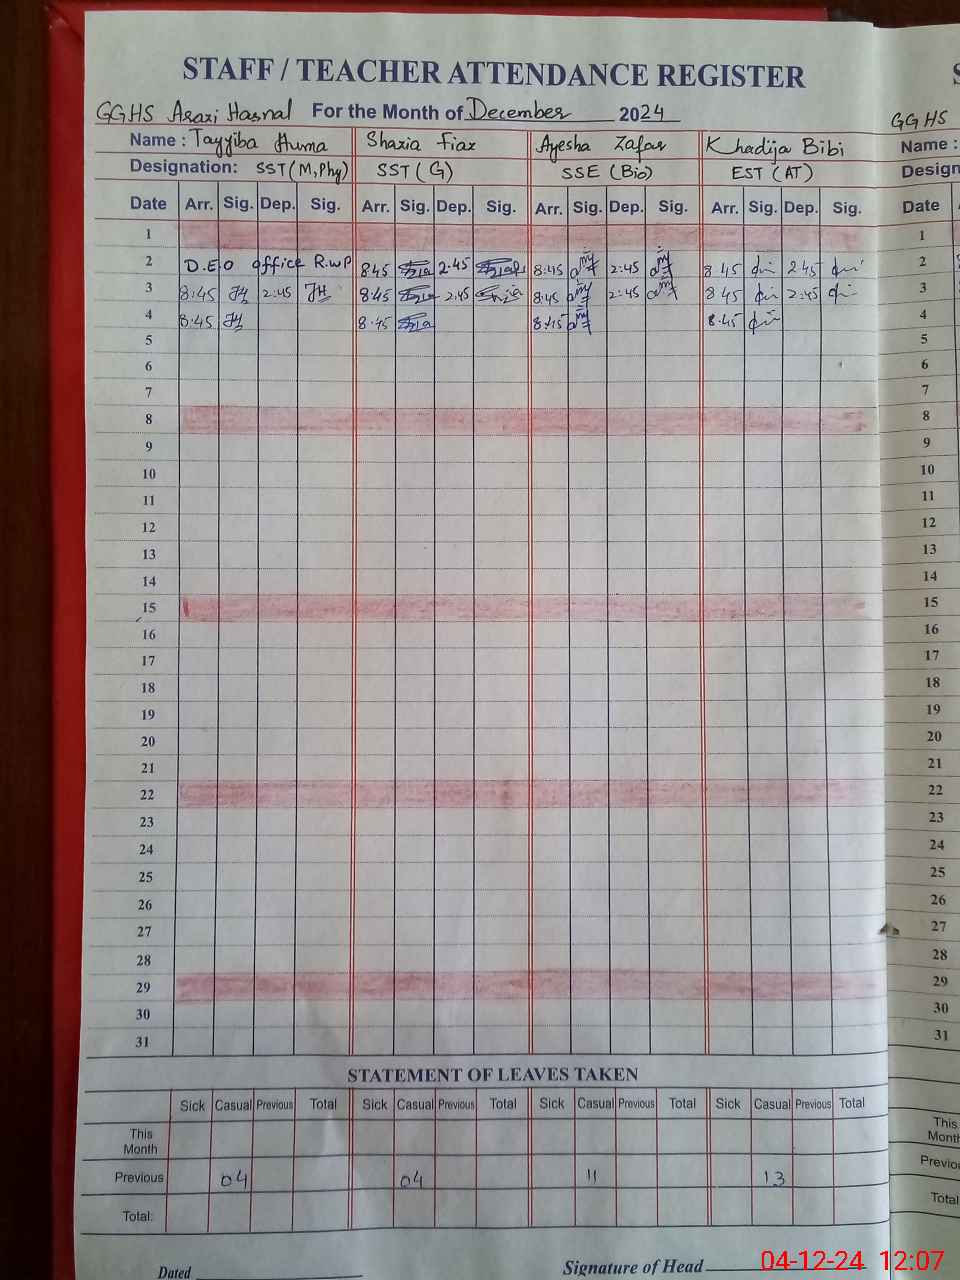 STAFF / TEACHER ATTENDANCE REGISTER
GGHS Arazi Hasnal For the Month of December 2024
Name : Tayyiba Huma Shazia Fiaz Ayesha Zafar Khadija Bibi
Designation: SST (M, Phy) SST (G) SSE (Bio) EST (AT)
Date Arr. Sig. Dep. Sig. Arr. Sig. Dep. Sig. Arr. Sig. Dep. Sig. Arr. Sig. Dep. Sig.
1
2 D.E.O office R.W.P 8:45 2:45 8:45 2:45 8:45 2:45
3 8:45 2:45 8:45 2:45 8:45 2:45 8:45 2:45
4 8:45 8:45 8:45 8:45
5
6
7
8
9
10
11
12
13
14
15
16
17
18
19
20
21
22
23
24
25
26
27
28
29
30
31
STATEMENT OF LEAVES TAKEN
Sick Casual Previous Total Sick Casual Previous Total Sick Casual Previous Total Sick Casual Previous Total
This Month
Previous 04 04 11 13
Total:
Dated Signature of Head
04-12-24 12:07
GGHS
Name :
Design
Date
1
2
3
4
5
6
7
8
9
10
11
12
13
14
15
16
17
18
19
20
21
22
23
24
25
26
27
28
29
30
31
This
Month
Previo
Total